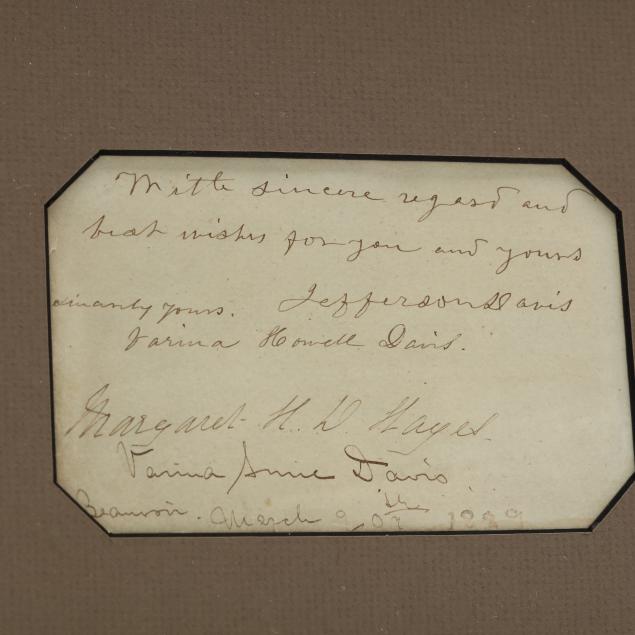 With sincere regard and
best wishes for you and yours
sincerely yours. Jefferson Davis
Varina Howell Davis.
Margaret H. D Hayes.
Varina Anne Davis
Beauvoir. March